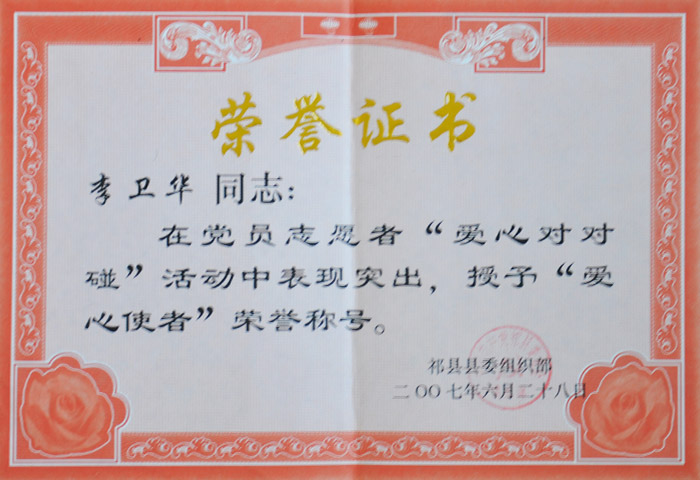 荣誉证书
李卫华 同志：
在党员志愿者“爱心对对
碰”活动中表现突出，授予“爱
心使者”荣誉称号。
祁县县委组织部
二〇〇七年六月二十八日